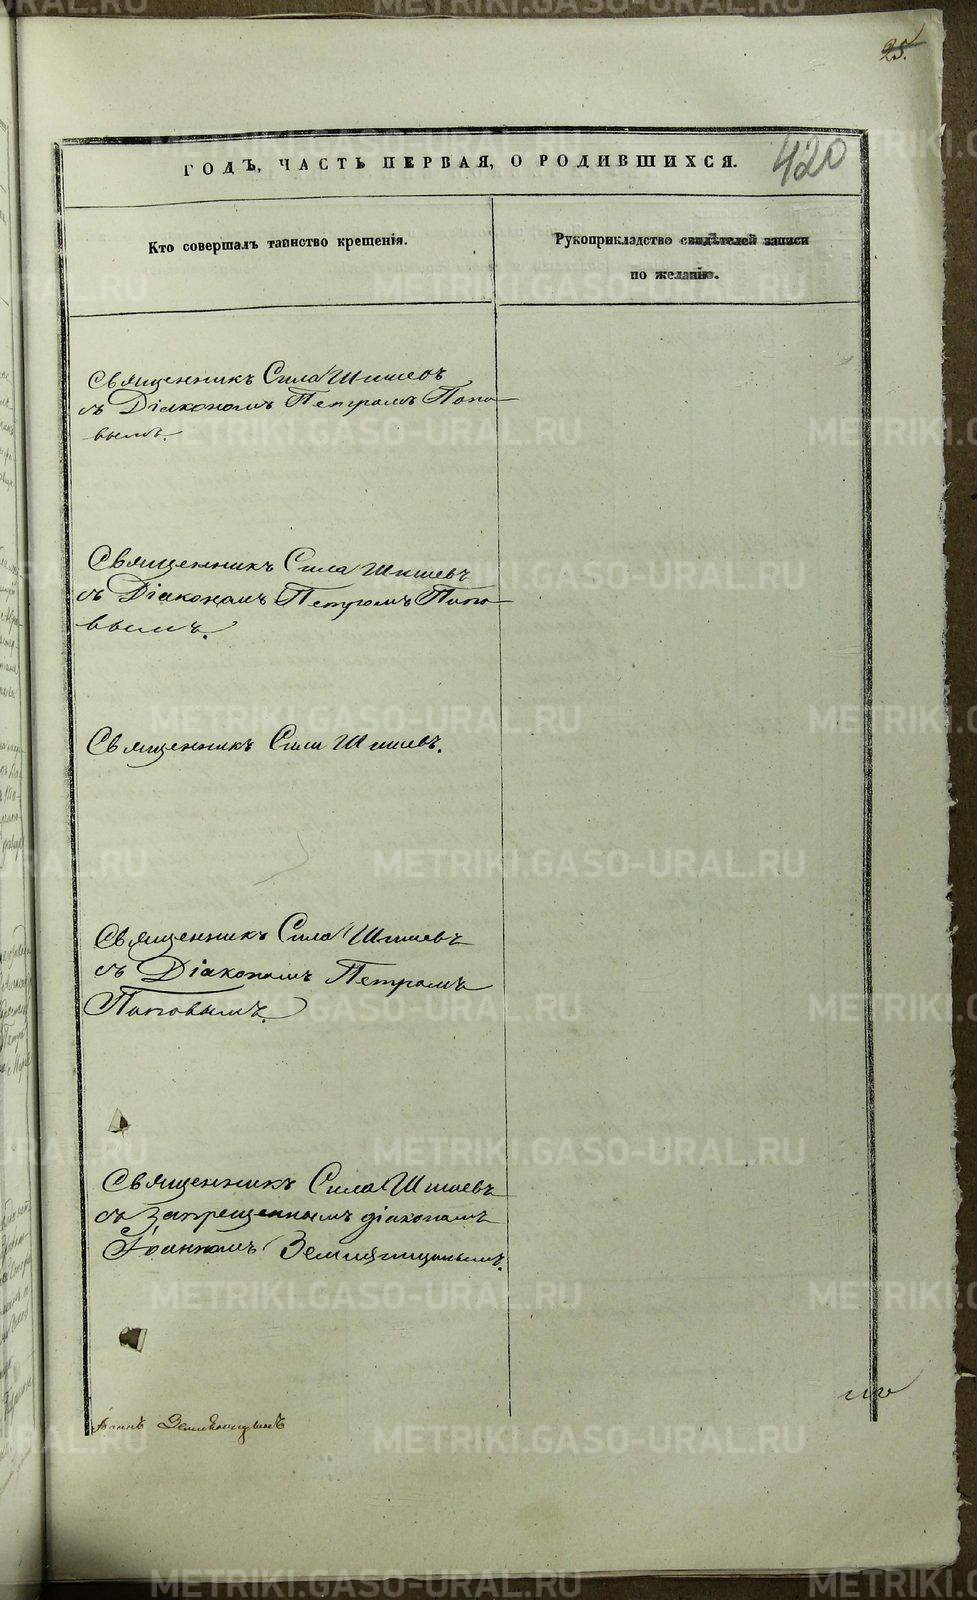 25.
420
ГОДЪ, ЧАСТЬ ПЕРВАЯ, О РОДИВШИХСЯ.
Кто совершалъ таинство крещенія.
Рукоприкладство свидѣтелей записи
по желанію.
Священникъ Сила Шишевъ
съ Діакономъ Петромъ Попо-
вымъ.
Священникъ Сила Шишевъ
съ Діакономъ Петромъ Попо-
вымъ.
Священникъ Сила Шишевъ.
Священникъ Сила Шишевъ
съ Діакономъ Петромъ
Поповымъ.
Священникъ Сила Шишевъ
съ запрещеннымъ діакономъ
Іоанномъ Землянициным.
по
Іоаннъ Земляницинъ
METRIKI.GASO-URAL.RU